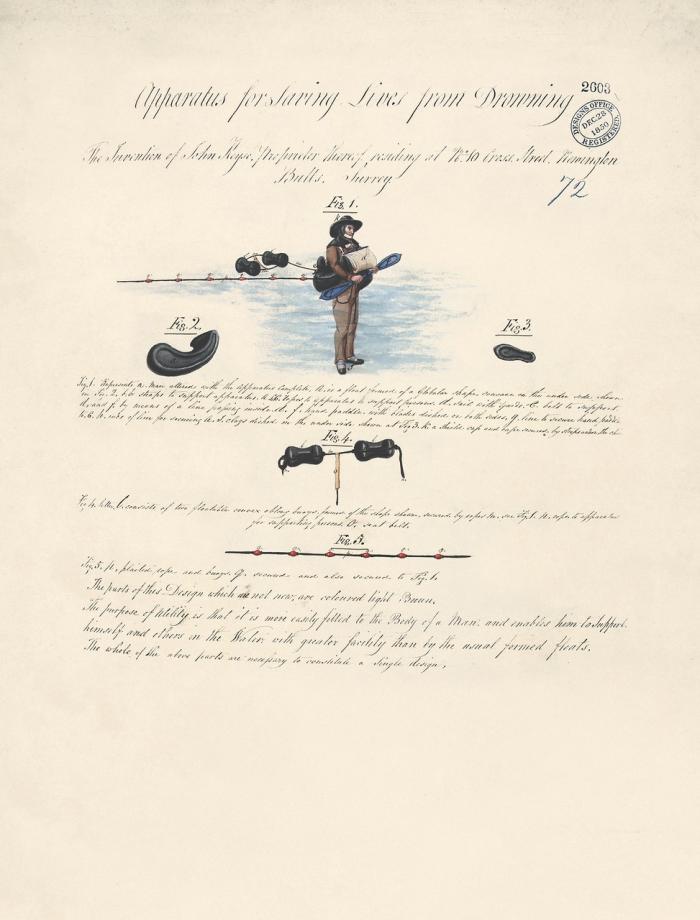 Apparatus for Saving Lives from Drowning
2603
DESIGNS OFFICE
DEC. 28
1850
REGISTERED
The Invention of John Keyse, Proprietor thereof, residing at No. 10 Cross Street, Newington
Butts. Surrey.
72
Fig. 1.
Fig. 2.
Fig. 3.
Fig. 1. Represents a Man attired with the apparatus complete, is a float formed of a Globular shape, concave on the under side, shewn
in Fig. 2. straps to support apparatus. ropes to apparatus to support persons. belt to support
and by means of a line passing inside hand paddle with blades dished on both sides, line to secure hand
of line for securing clogs dished on the under side shewn at Fig. 3. cap and cape
Fig. 4.
consists of two floatable convex oblong buoys, formed of the shape shewn, secured by ropes see Fig. 1. ropes to apparatus
for supporting persons. O. seat belt.
Fig. 5.
Fig. 5. plaited rope and buoys secured and also secured to Fig. 1.
The parts of this Design which are not new, are coloured light Brown.
The purpose of Utility is that it is more easily fitted to the Body of a Man, and enables him to Support
himself and others in the Water with greater facility than by the usual formed floats.
The whole of the above parts are necessary to constitute a Single design.